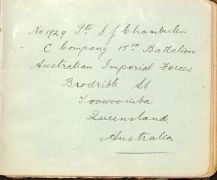 No 1729 Pte S J Chamberlen
C Company 15TH Battalion
Australian Imperial Forces
Brodribb St
Toowoomba
Queensland
Australia